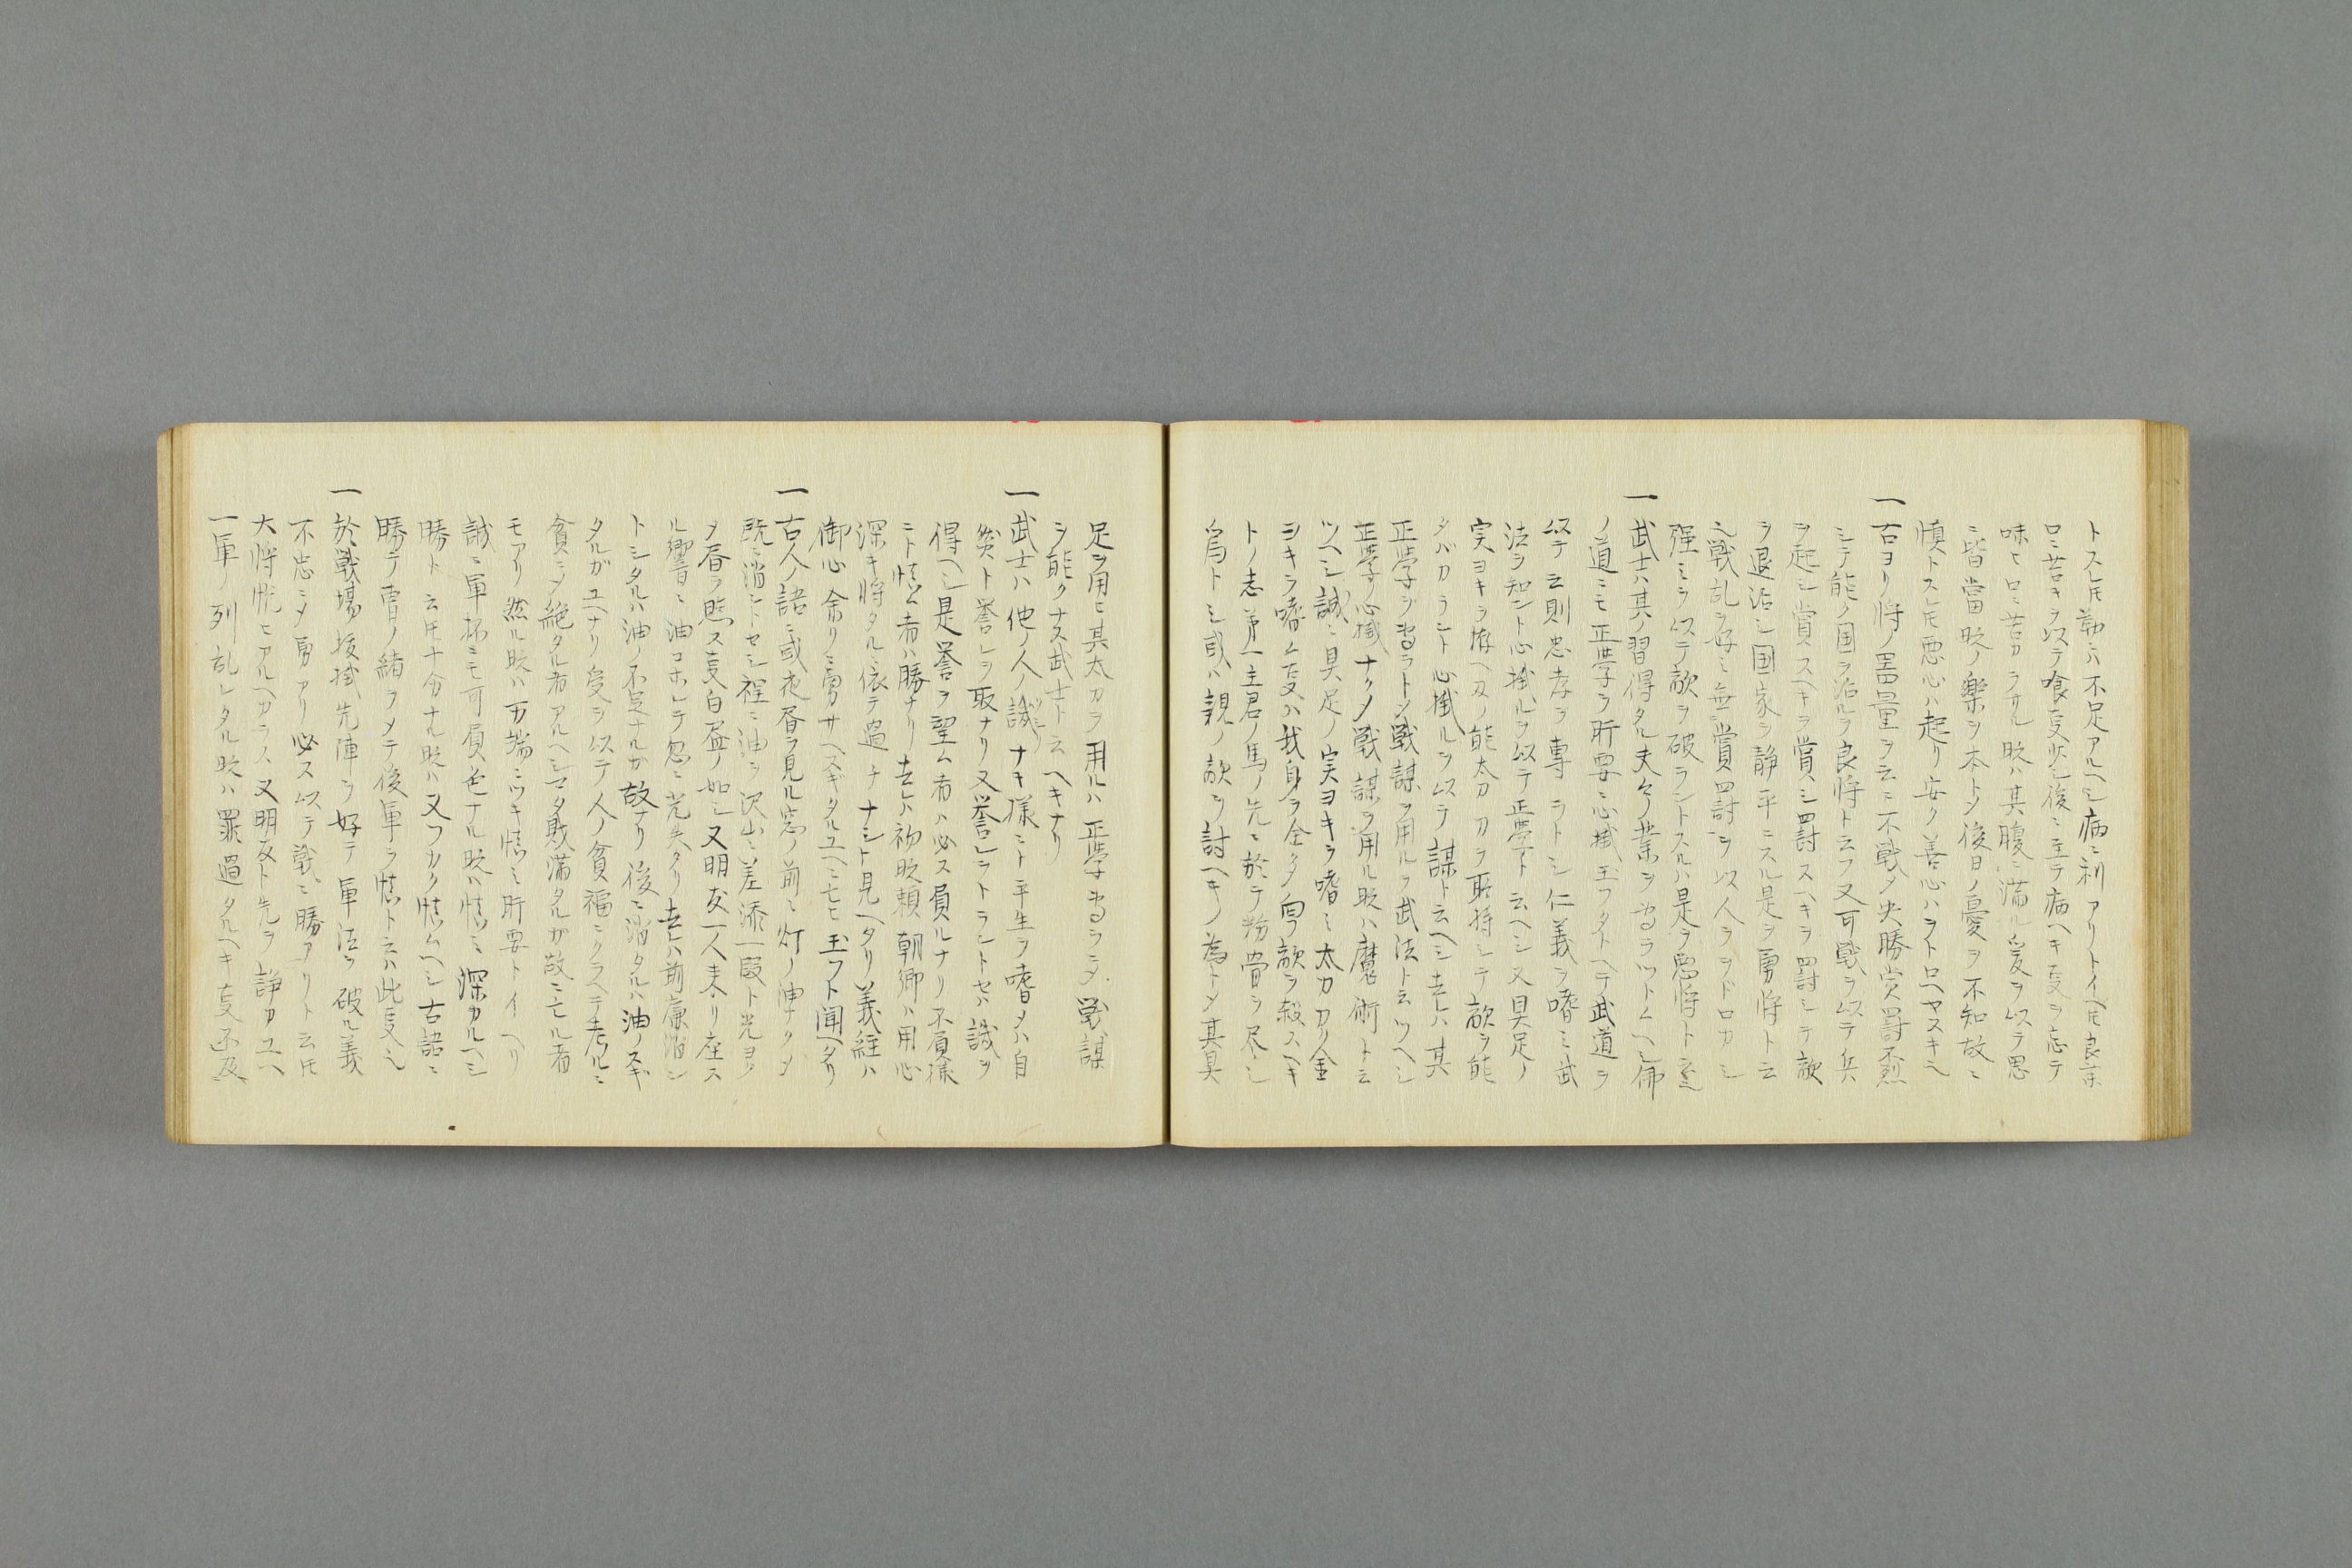 トスレ𪜈勤ニハ不足アルヘシ病ニ利アリトイヘ𪜈良薬
口ニ苦キヲ以テ喰㕝少シ後ニ至テ病ヘキ㕝ヲ忘テ
味ヒ口ニ苦カラサル時ハ其腹ニ満ル爰ヲ以テ思
ニ皆當時ノ樂ヲ本トシテ後日ノ憂ヲ不知故ニ
慎トスレ𪜈悪心ハ起リ安ク善心ハヲトロヘヤスキヘ
一古ヨリ将ノ器量ヲ云ニ不戦メ決勝賞罰不愆
シテ能ノ国ヲ治ルヲ良将ト云フ又可戦ヲ以テ兵
ヲ起シ賞スヘキヲ賞シ罰スヘキヲ罰シテ敵
ヲ退治シ国家ヲ静平ニスル是ヲ勇将ト云
戦乱ヲ好ミ無賞罰ヲ以人ヲヲドロカシ
強ミヲ以テ敵ヲ破ラントスルハ是ヲ悪将ト云
一武士ハ其ノ習得タル夫々ノ業ヲ守ラツトムヘシ佛
ノ道ニモ正学ヲ肝要ニ心掛玉フタトヘテ武道ヲ
以テ云則忠孝ヲ專ラトシ仁義ヲ嗜ミ武
法ヲ知ント心掛ルヲ以テ正学ト云ヘシ又具足ノ
実ヨキヲ侟ヘ刄ノ能太刀カヲ取持シテ敵ヲ能
タバカラント心掛ルヲ以テ謀ト云ヘシ去レハ其
正学ヲ守ラトシ戦謀ヲ用ルヲ武法ト云ツヘシ
正学ノ心掛ナクメ戦謀ヲ用ル時ハ魔術ト云
ツヘシ誠ニ具足ノ実ヨキヲ嗜ミ太刀カリ金
ヨキヲ嗜ム㕝ハ我身ヲ全タ向敵ヲ殺スヘキ
トノ志第一主君ノ馬ノ先ニ於テ粉骨ヲ尽シ
為トシ或ハ親ノ敵ヲ討ヘキノ為トメ其具
足ヲ用ヒ其太刀ヲ用ルハ正学守ラシテ戦謀
ヲ能クナス武士ト云ヘキナリ
一武士ハ他ノ人ノ譏ソシリナキ様ニト平生ヲ嗜メハ自
然ト誉レヲ取ナリ又誉レヲトラントセハ譏ヲ
得ヘシ是誉ヲ望ム者ハ必ス負ルナリ不負様
ニト慎ム者ハ勝ナリ去レハ初時頼朝卿ハ用心
深キ将タルニ依テ過チナシト見ヘタリ義経ハ
御心余リニ勇サヘスギタルユヘニ亡ヒ玉フト聞ヘタリ
一古人ノ語ニ或夜昏ヲ見ル窓ノ前ニ灯ノ油ナクメ
既ニ消ントセシ程ニ油ヲ沢山ニ差添一段ト光ヨク
メ昏ヲ照ス㕝白昼ノ如シ又明友一人来リ座ス
ル響ニ油コホレテ忽ニ光失タリ去レハ前廉消ン
トシタルハ油ノ不足ナルガ故ナリ後ニ消タルハ油ノスギ
タルガユヘナリ爰ヲ以テ人ノ貧福ニクラヘテ去ルニ
貧シメ絶タル者アルヘシマタ財満タルガ故ニ亡ル者
モアリ然ル時ハ万端ニツキ慎ミ肝要トイヘリ
誠ニ軍杯ニモ可負色ナル時ハ慎ミ深カルヘシ
勝ト云𪜈十分ナル時ハ又フカク慎ムヘシ古語ニ
勝テ冑ノ緒ヲメテ後軍ヲ慎ト云ハ此㕝ヘ
一於戦場抜掛先陣ヲ好テ軍法ヲ破ル義
不忠ニメ勇アリ必ス以テ戦ニ勝アリト云𪜈
大将悦ヒアルヘカラス又明友ト先ヲ諍カユヘ
一軍ノ列乱レタル時ハ罪過タルヘキ㕝不及